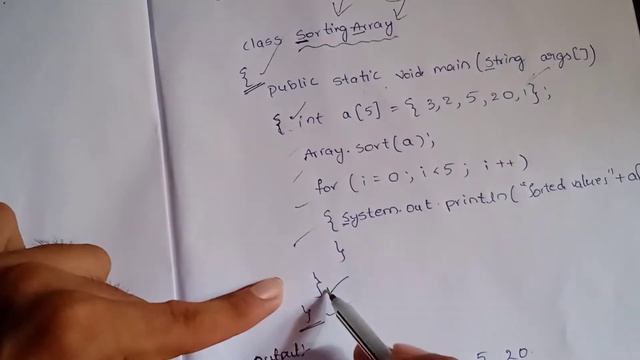 class Sorting Array
{
public static void main(String args[])
{ int a[5] = {3,2,5,20,1};
Array.sort(a);
for (i=0; i<5; i++)
{ System.out.println("Sorted values"+a
}
}
}
output:-
5 20